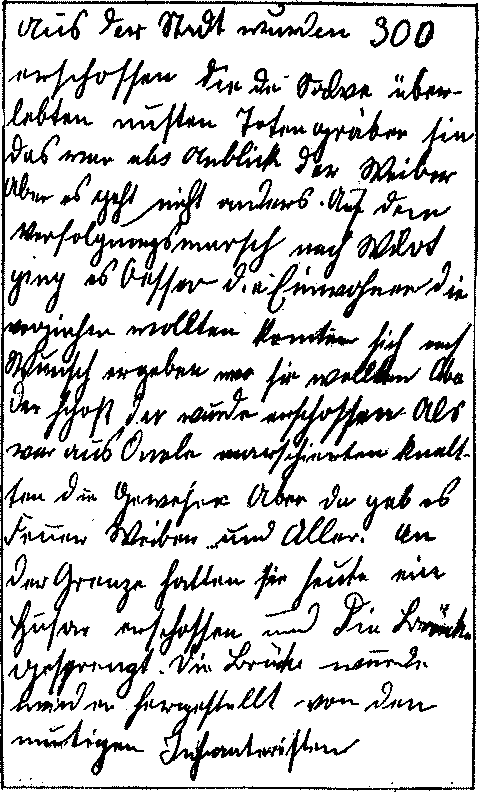 Aus der Stadt wurden 300
erschossen die die Salve über-
lebten mußten Totengräber sein
das war ein Anblick der Weiber
Aber es geht nicht anders. Auf dem
Verfolgungsmarsch nach Wilot
ging es besser die Einwohner die
verziehen wollten konnten sich nach
Wunsch ergeben wo sie wollten Aber
der schoß der wurde erschossen Als
wir aus Owele marschierten knalt-
ten die Gewehre Aber da gab es
Feuer Weiber und Alles. An
der Grenze hatten sie heute ein
Husar erschossen und Die Brücke
gesprengt. Die Brücke wurde
wieder hergestellt von den
mutigen Infanteristen